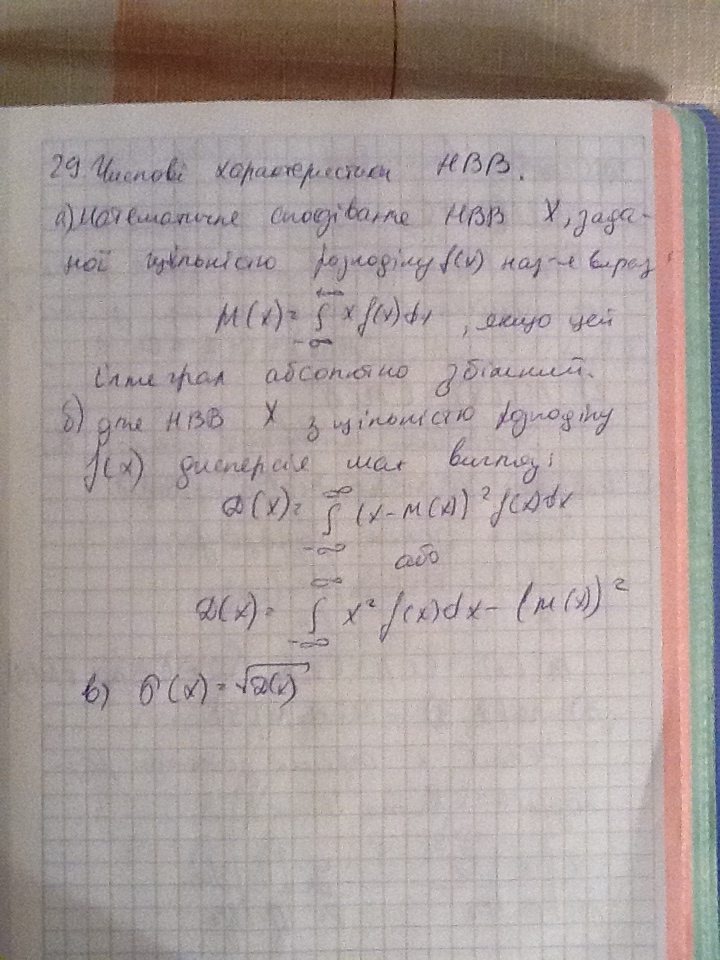 29 Числові характеристики НВВ.
а) Математичне сподівання НВВ X, зада-
ної щільністю розподілу f(x) наз-є вираз,
M(x) = ∫ x f(x)dx, якщо цей
∞
-∞
інтеграл абсолютно збіжний.
б) для НВВ X з щільністю розподілу
f(x) дисперсія має вигляд:
D(x) = ∫ (x-M(x))² f(x)dx
∞
-∞
або
D(x) = ∫ x² f(x)dx - (M(x))²
∞
-∞
в) б(x) = √D(x)